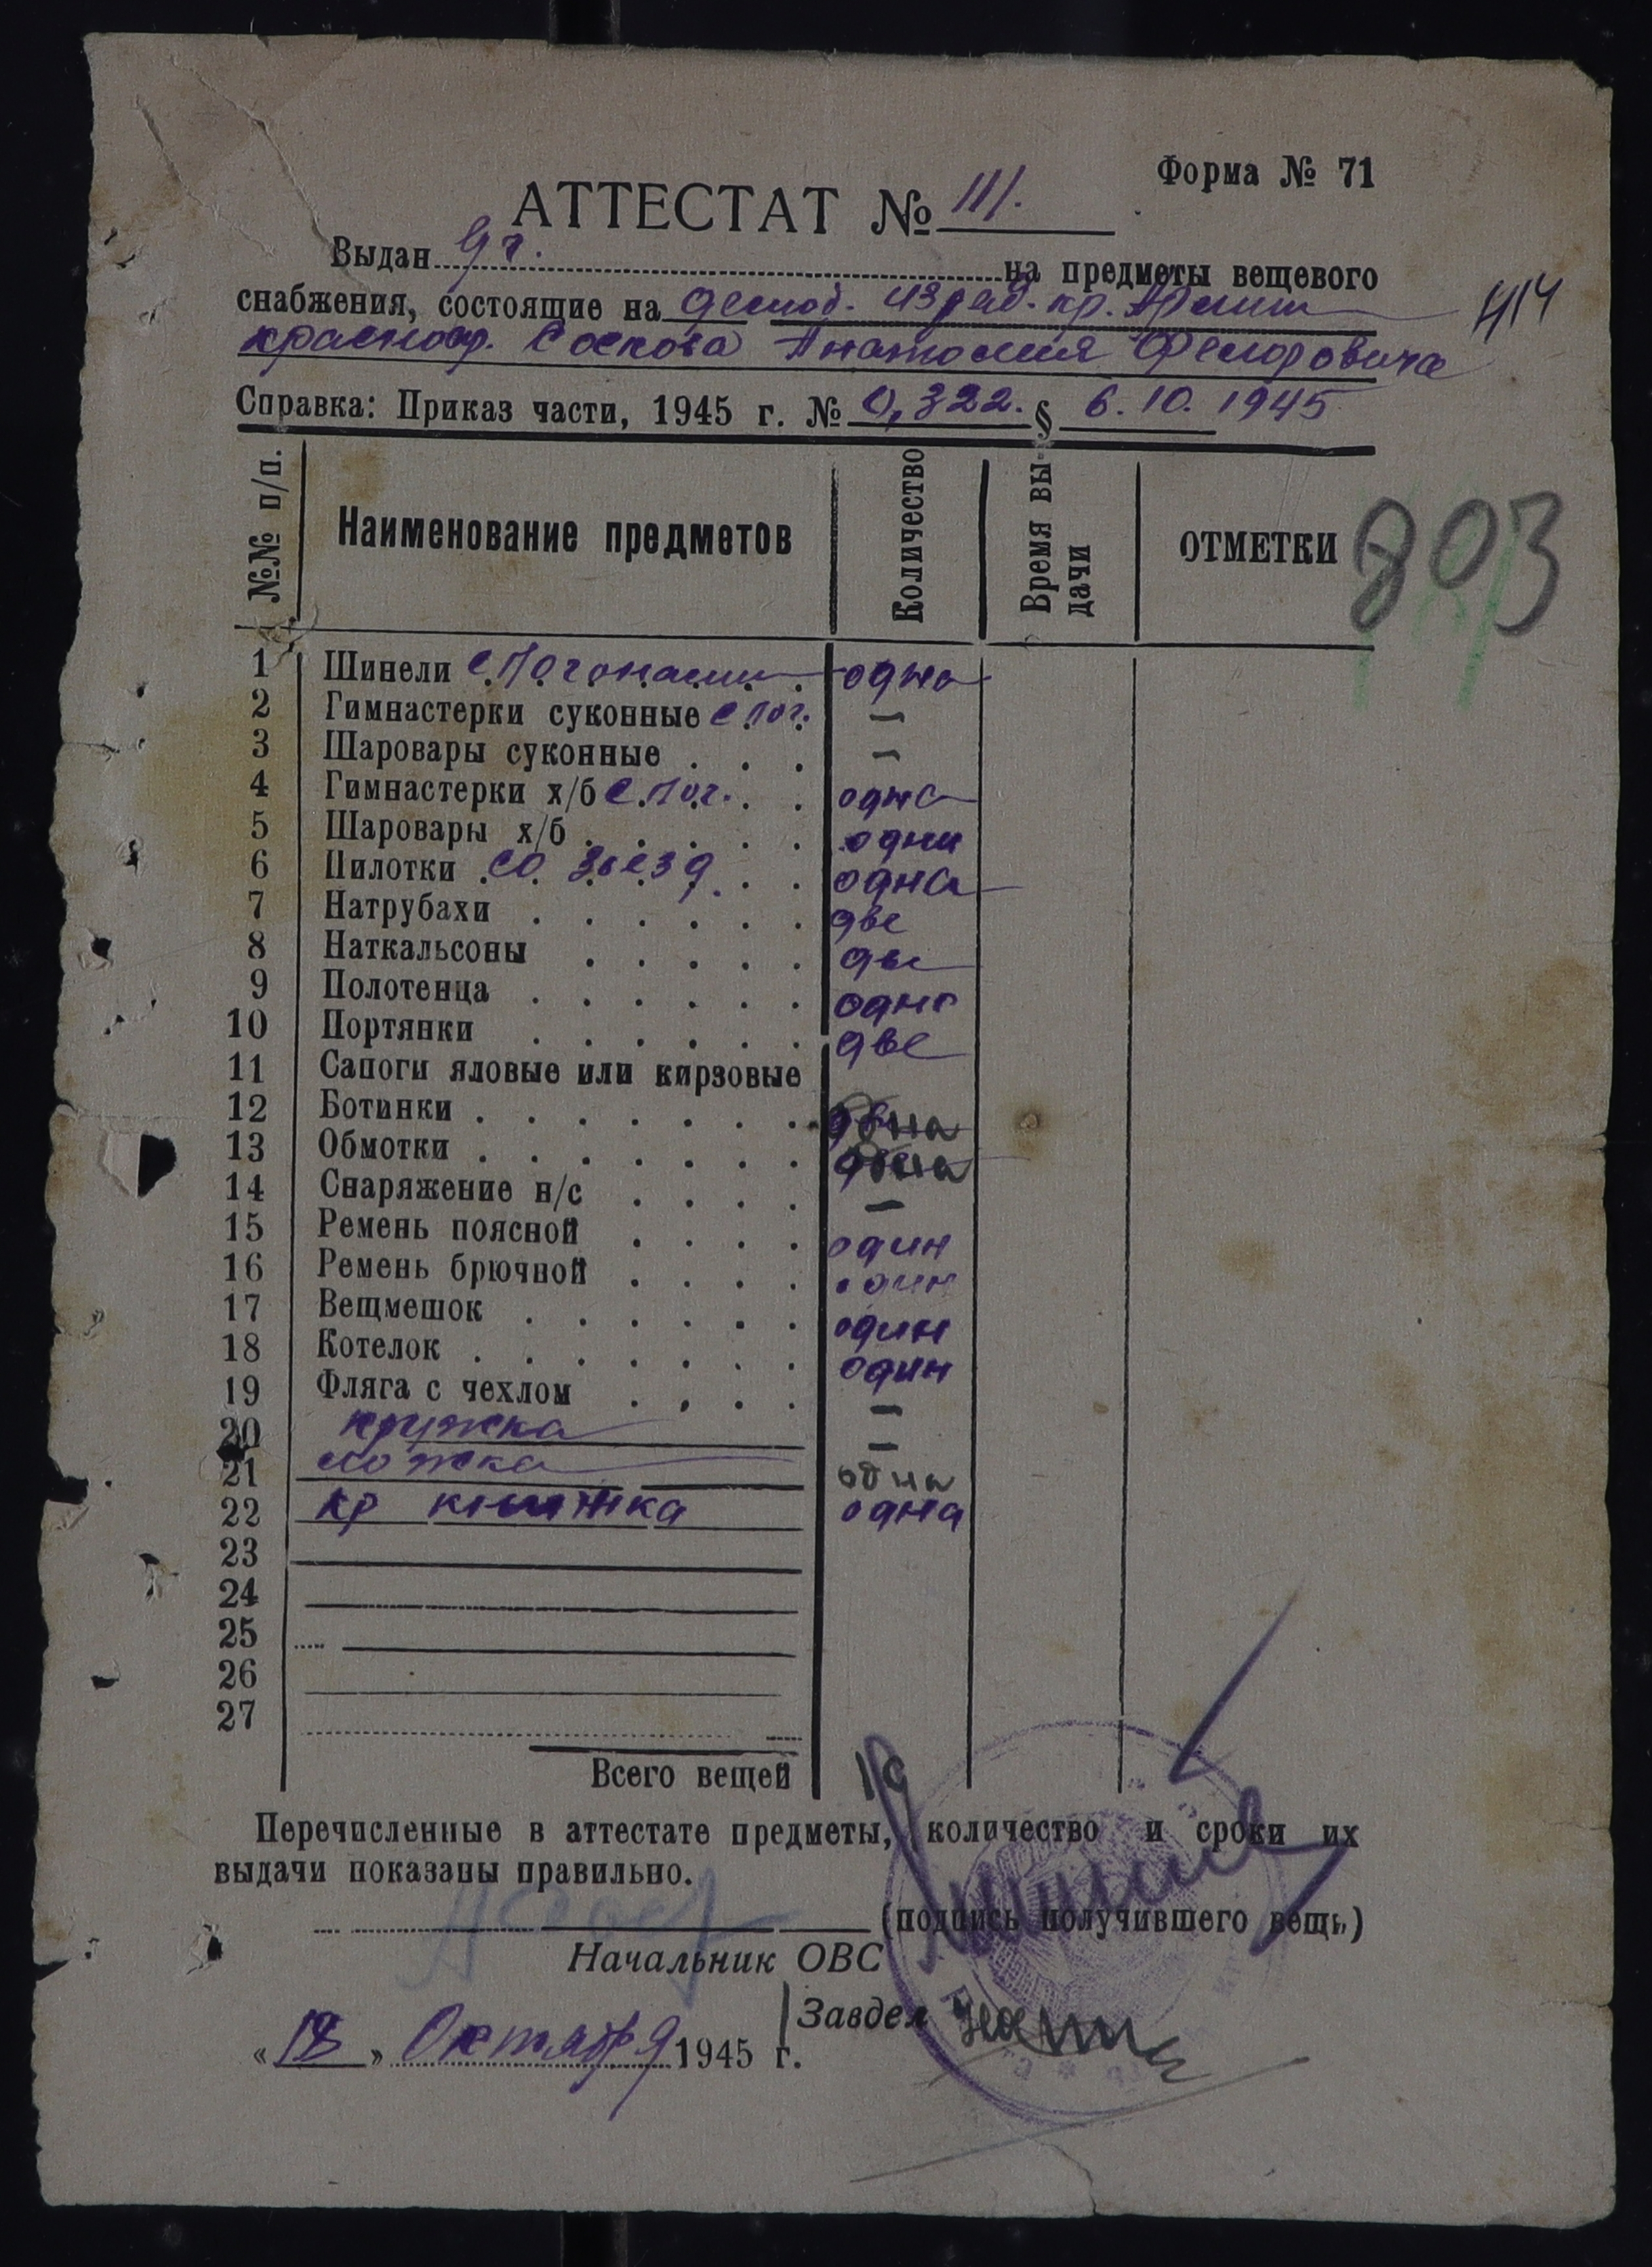 Форма № 71
АТТЕСТАТ № 111.
Выдан на предметы вещевого
снабжения, состоящие на демоб. из ряд. кр. Армии 414
красноар. Соскова Анатолия Федоровича
Справка: Приказ части, 1945 г. № 0,322. § 6.10.1945
№№ п/п. Наименование предметов Количество Время выдачи ОТМЕТКИ 803
1 Шинели с погонами одна
2 Гимнастерки суконные с пог. —
3 Шаровары суконные . . . —
4 Гимнастерки х/б с пог. . . одна
5 Шаровары х/б . . . . . одни
6 Пилотки со звезд. . . одна
7 Натрубахи . . . . . . две
8 Наткальсоны . . . . . две
9 Полотенца . . . . . . одно
10 Портянки . . . . . . две
11 Сапоги яловые или кирзовые
12 Ботинки . . . . . . . одна
13 Обмотки . . . . . . . одна
14 Снаряжение н/с . . . . —
15 Ремень поясной . . . . один
16 Ремень брючной . . . . один
17 Вещмешок . . . . . . один
18 Котелок . . . . . . . один
19 Фляга с чехлом . . . . —
20 кружка —
21 ложка одна
22 кр книжка одна
23
24
25
26
27
Всего вещей
Перечисленные в аттестате предметы, количество и сроки их
выдачи показаны правильно.
(подпись получившего вещь)
Начальник ОВС
Завдел
« 18 » Октября 1945 г.